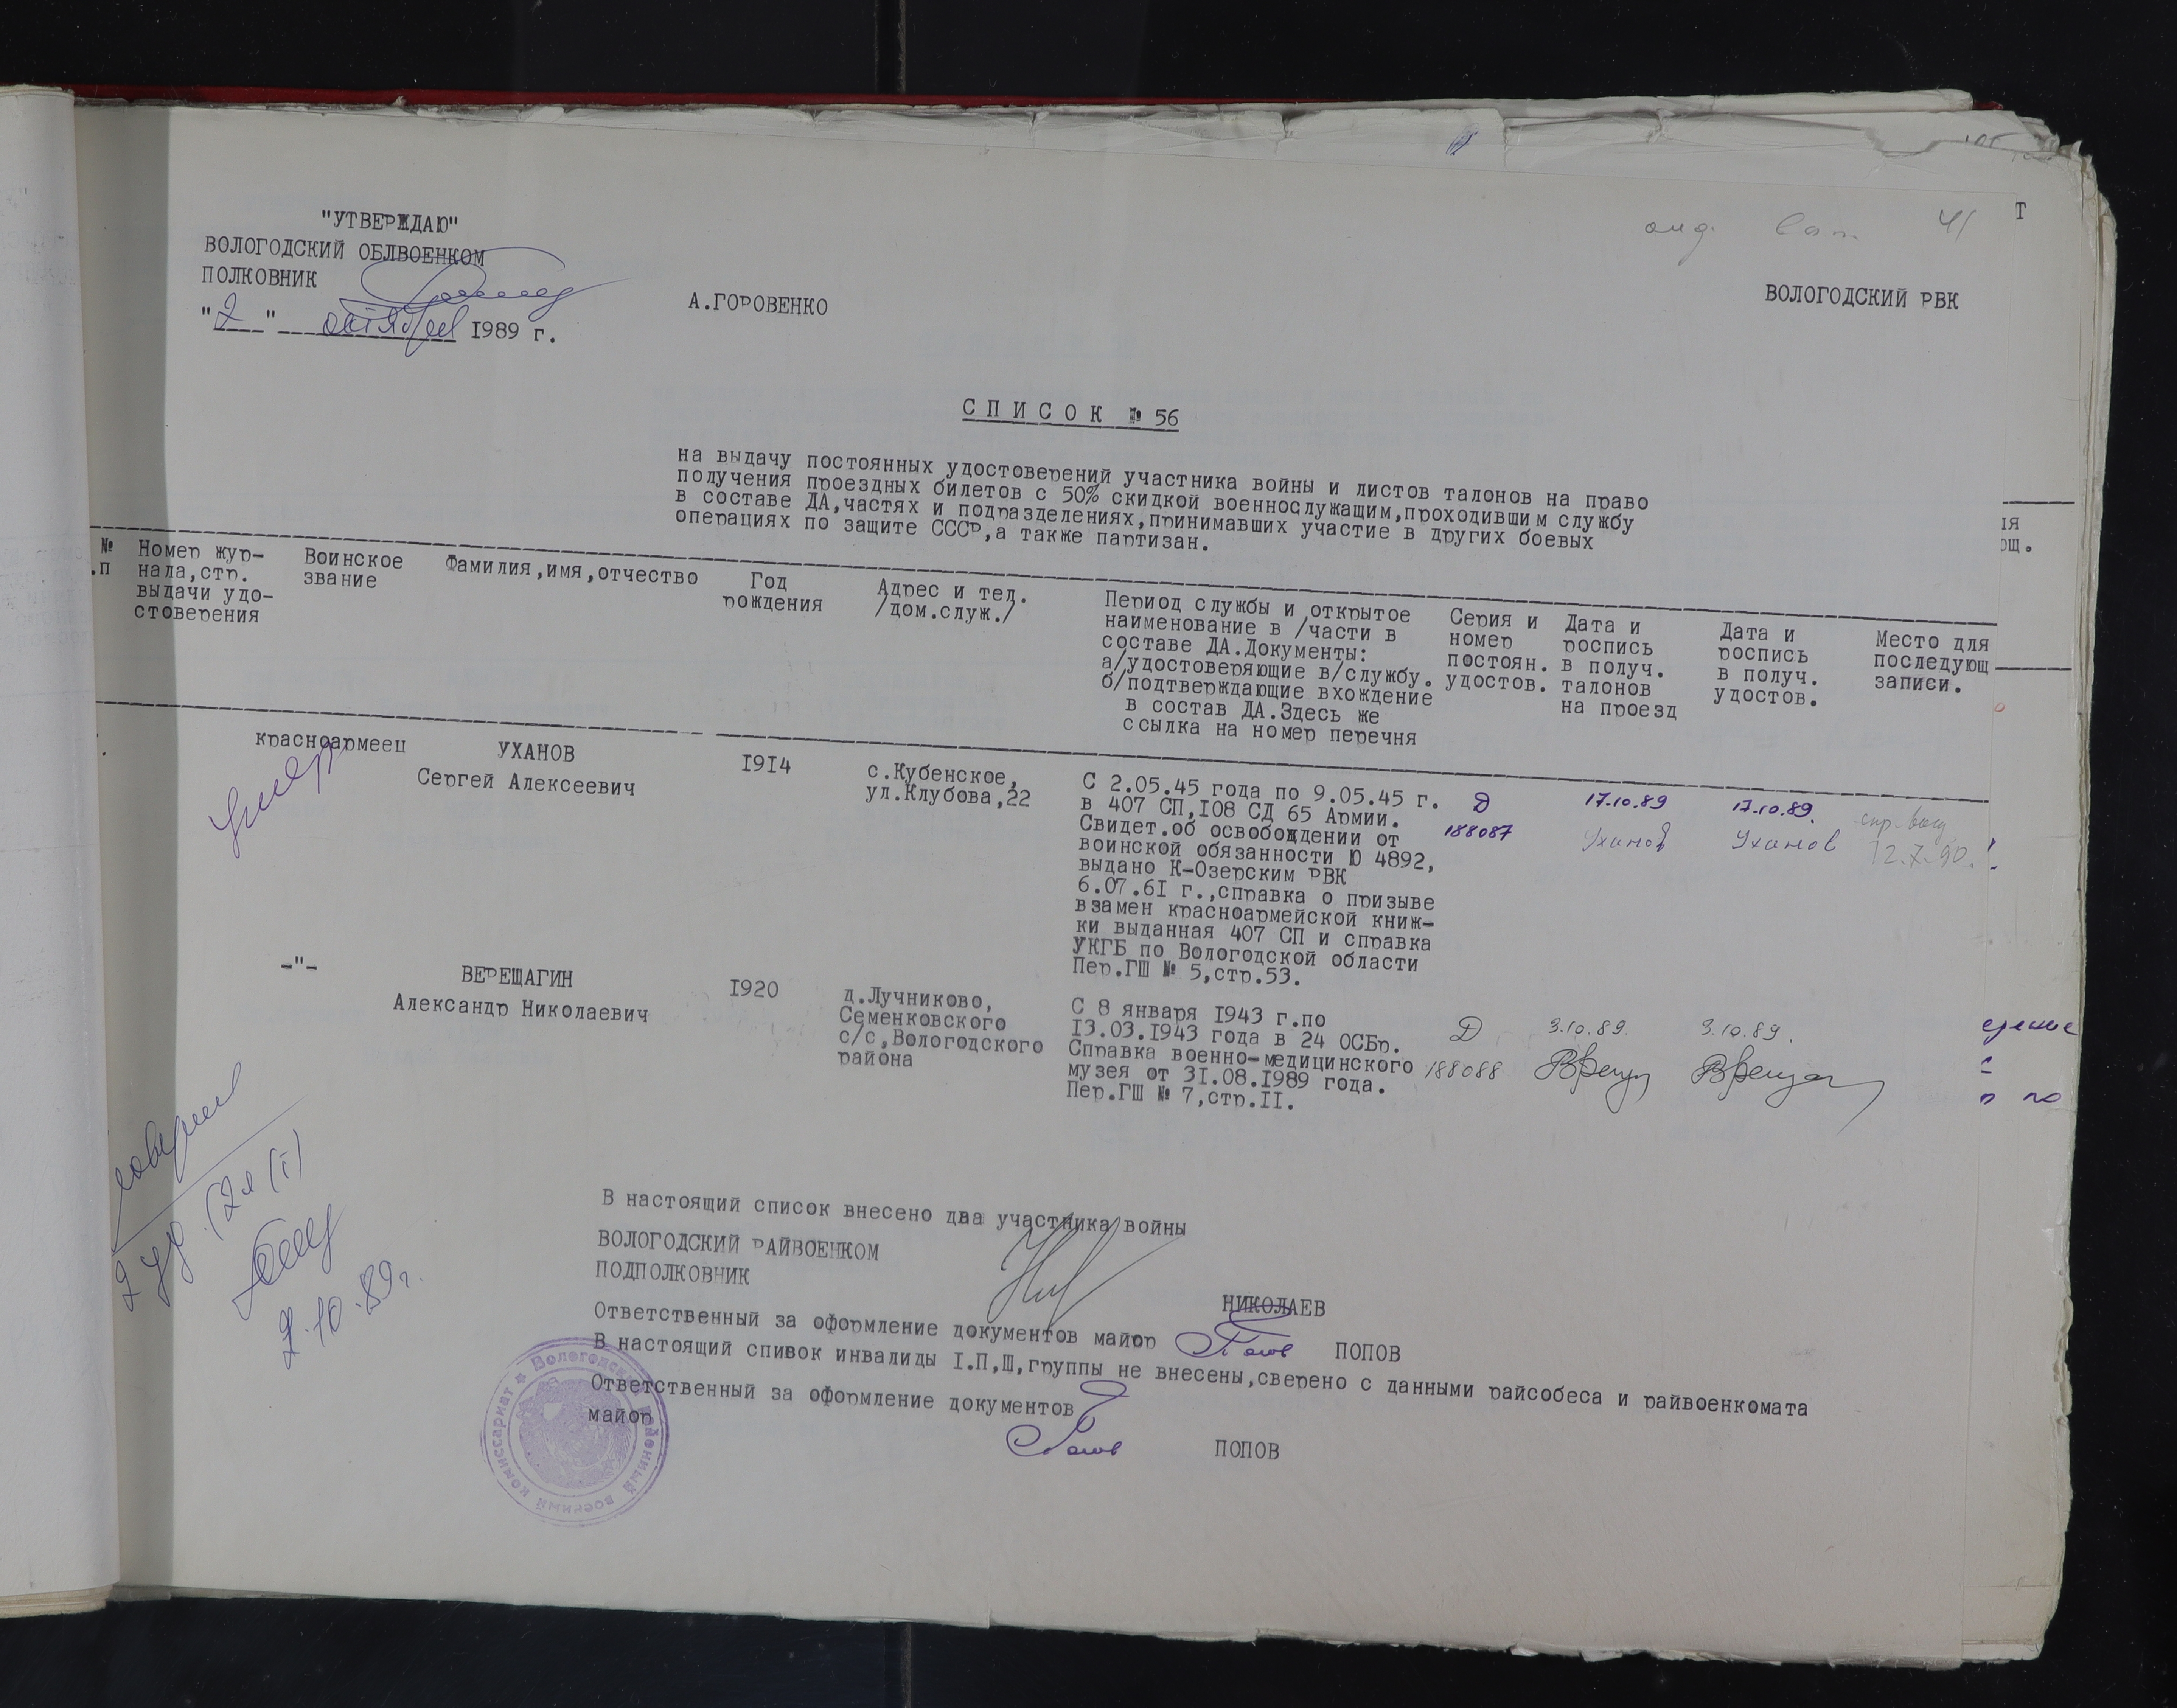 41
"УТВЕРЖДАЮ"
ВОЛОГОДСКИЙ ОБЛВОЕНКОМ
ПОЛКОВНИК
А.ГОРОВЕНКО
ВОЛОГОДСКИЙ РВК
"2" октября 1989 г.
СПИСОК № 56
на выдачу постоянных удостоверений участника войны и листов талонов на право
получения проездных билетов с 50% скидкой военнослужащим,проходившим службу
в составе ДА,частях и подразделениях,принимавших участие в других боевых
операциях по защите СССР,а также партизан.
№
.п
Номер жур-
нала,стр.
выдачи удо-
стоверения
Воинское
звание
Фамилия,имя,отчество
Год
рождения
Адрес и тел.
/дом.служ./
Период службы и открытое
наименование в /части в
составе ДА.Документы:
а/удостоверяющие в/службу.
б/подтверждающие вхождение
в состав ДА.Здесь же
ссылка на номер перечня
Серия и
номер
постоян.
удостов.
Дата и
роспись
в получ.
талонов
на проезд
Дата и
роспись
в получ.
удостов.
Место для
последующ
записи.
красноармеец
умер
УХАНОВ
Сергей Алексеевич
1914
с.Кубенское,
ул.Клубова,22
С 2.05.45 года по 9.05.45 г.
в 407 СП,108 СД 65 Армии.
Свидет.об освобождении от
воинской обязанности Ю 4892,
выдано К-Озерским РВК
6.07.61 г.,справка о призыве
взамен красноармейской книж-
ки выданная 407 СП и справка
УКГБ по Вологодской области
Пер.ГШ № 5,стр.53.
Д
188087
17.10.89
Уханов
17.10.89.
Уханов
12.7.90.
-"-
ВЕРЕЩАГИН
Александр Николаевич
1920
д.Лучниково,
Семенковского
с/с,Вологодского
района
С 8 января 1943 г.по
13.03.1943 года в 24 ОСБр.
Справка военно-медицинского
музея от 31.08.1989 года.
Пер.ГШ № 7,стр.II.
Д
188088
3.10.89.
3.10.89.
2.10.89г.
В настоящий список внесено два участника войны
ВОЛОГОДСКИЙ РАЙВОЕНКОМ
ПОДПОЛКОВНИК
НИКОЛАЕВ
Ответственный за оформление документов майор Попов ПОПОВ
В настоящий спивок инвалиды I.П,Ш,группы не внесены,сверено с данными райсобеса и райвоенкомата
Ответственный за оформление документов
майор
Попов ПОПОВ
Вологодский районный военный комиссариат